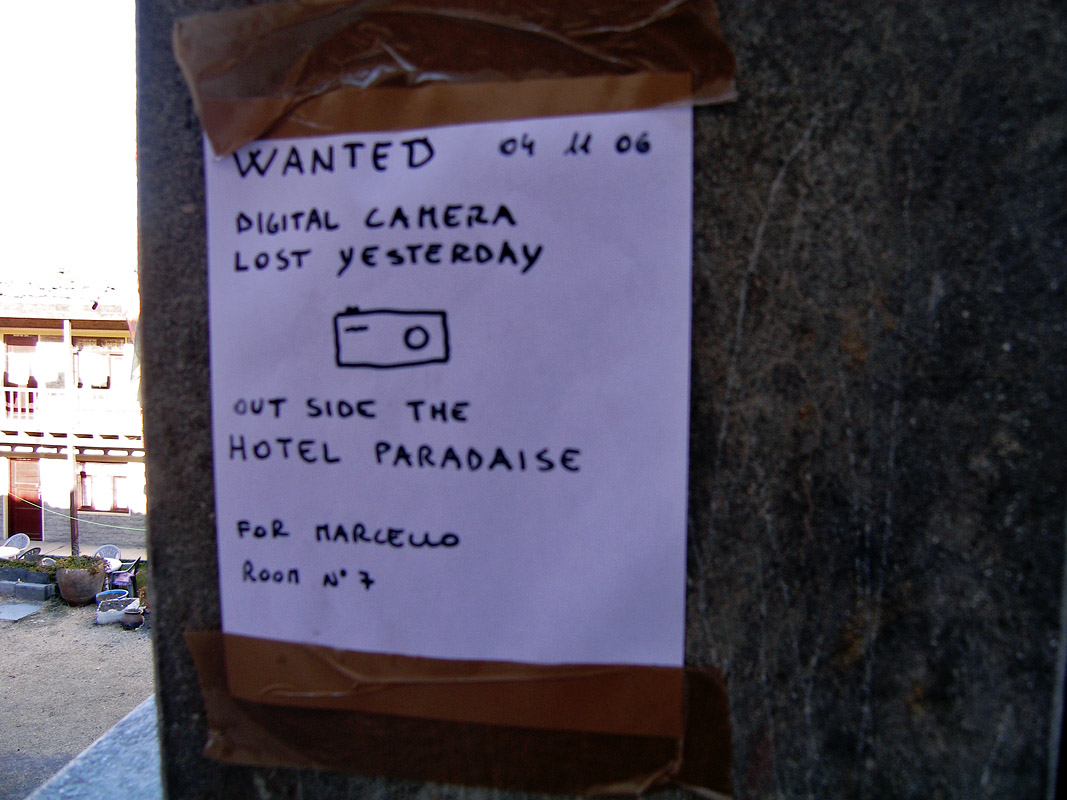 WANTED 04 11 06
DIGITAL CAMERA
LOST YESTERDAY
OUT SIDE THE
HOTEL PARADAISE
FOR MARCELLO
ROOM N° 7